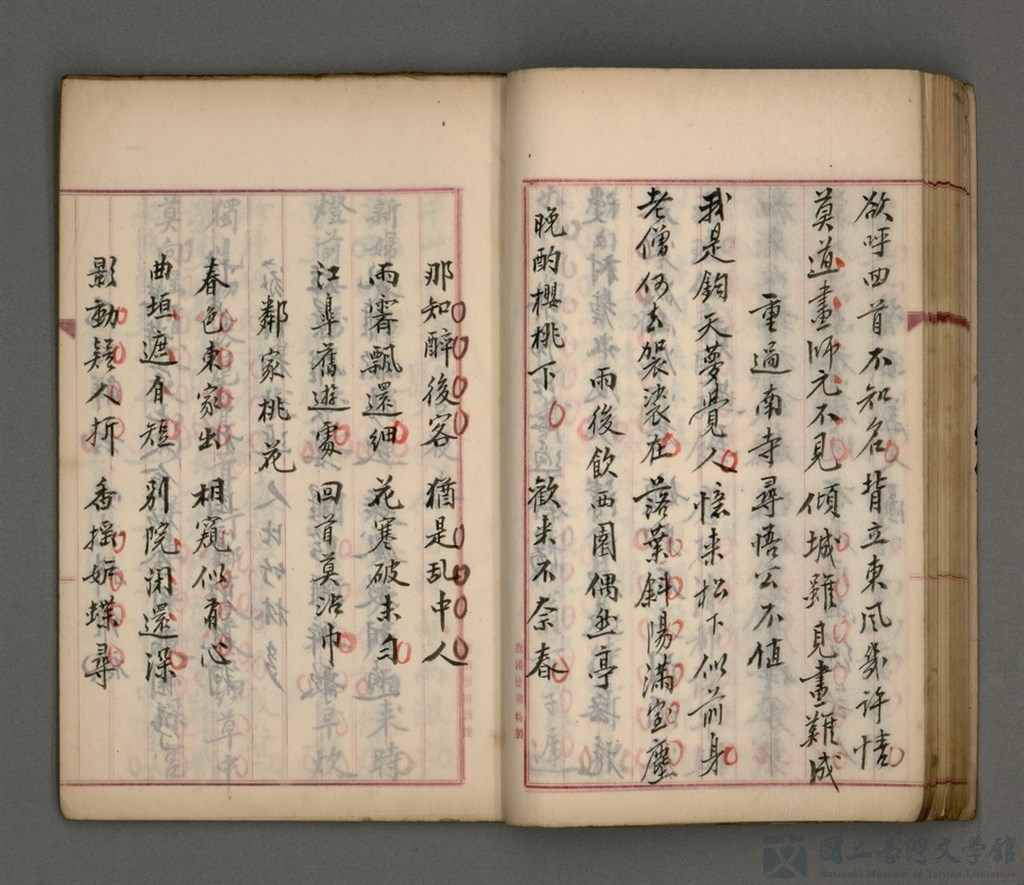 欲呼回首不知名 背立東風幾許情
莫道畫師元不見 傾城雖見畫難成
重過南寺尋悟公不值
我是鈞天夢覺人 憶来松下似前身
老僧何去袈裟在 落葉斜陽滿室塵
雨後飲西園偶然亭
晚酌櫻桃下 歡来不奈春
那知醉後客 猶是乱中人
雨霽飄還細 花寒破未勻
江皐舊遊處 回首莫沾巾
鄰家桃花
春色東家出 相窺似有心
曲垣遮自短 別院闲還深
影動疑人折 香摇妒蝶尋
國立臺灣文學館
National Museum of Taiwan Literature